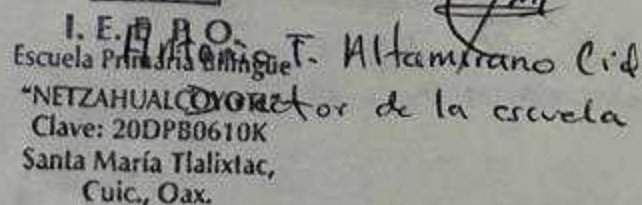 I. E. E. P. O.
Escuela Primaria Bilingüe
"NETZAHUALCOYOTL"
Clave: 20DPB0610K
Santa María Tlalixtac,
Cuic., Oax.
T. Altamirano Cid
Director de la escuela